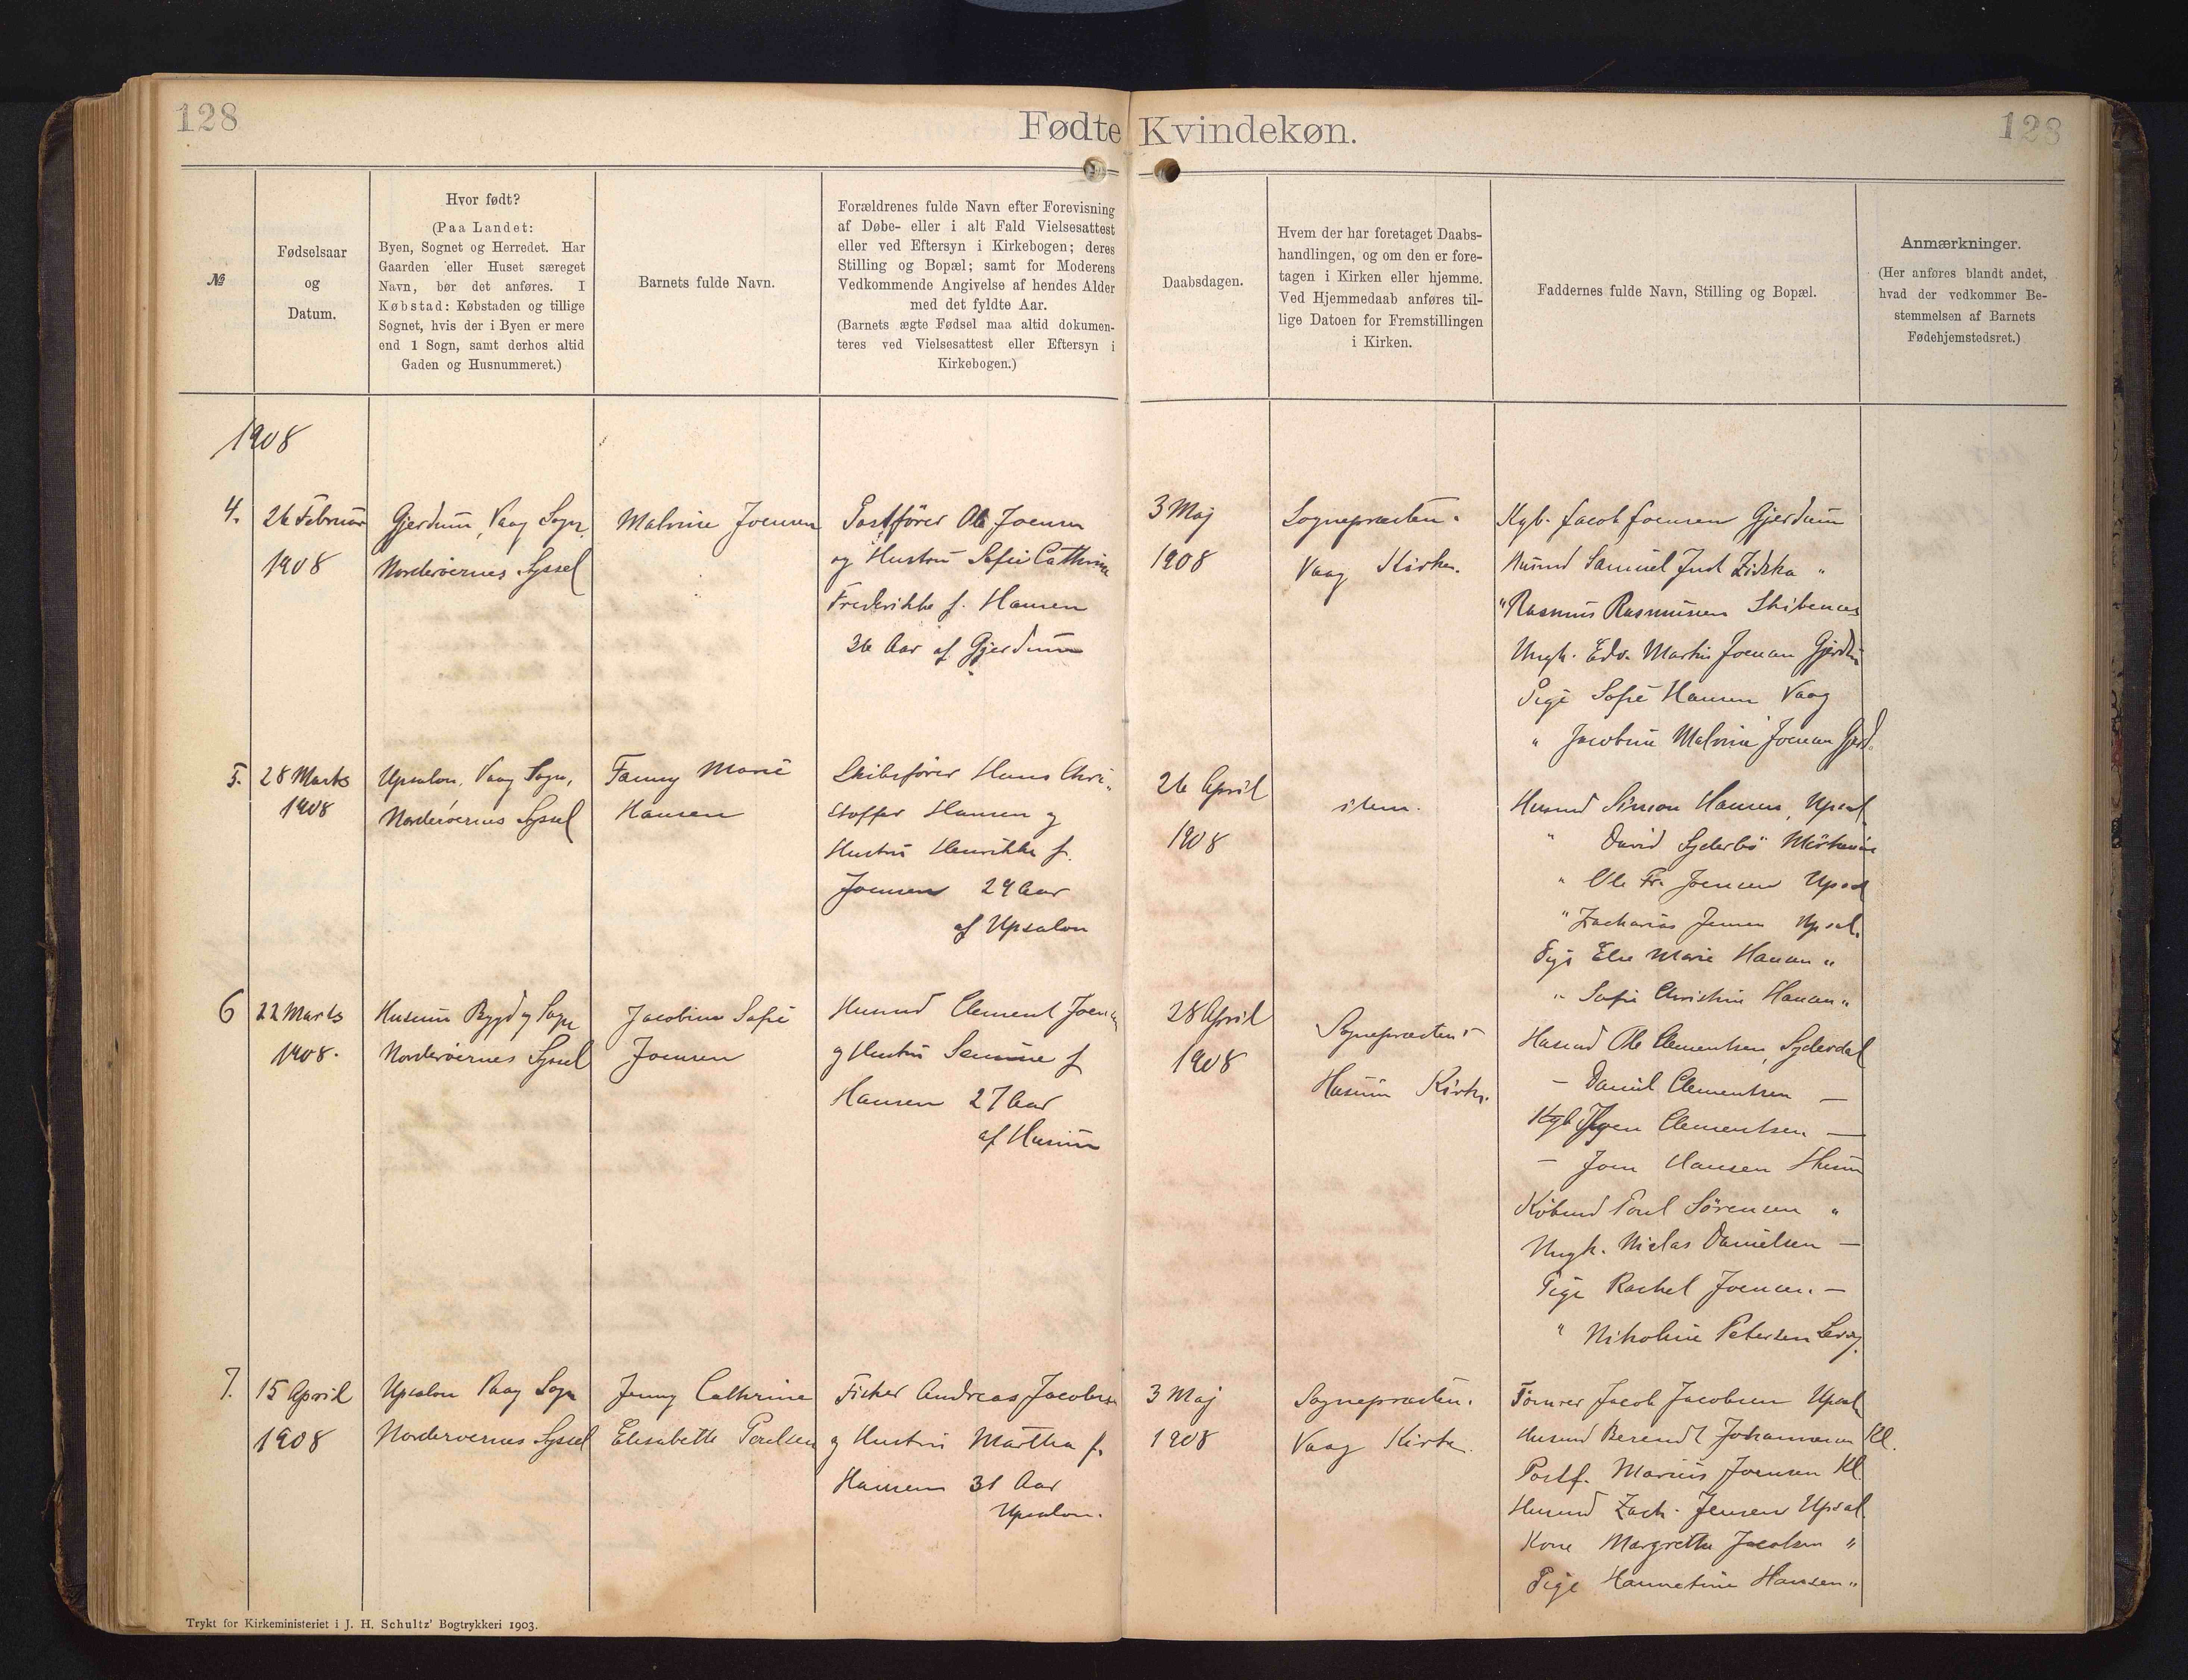 128
Fødte Kvindekøn.
128
№
Fødselsaar
og
Datum.
Hvor født?
(Paa Landet:
Byen, Sognet og Herredet. Har
Gaarden eller Huset særeget
Navn, bør det anføres. I
Købstad: Købstaden og tillige
Sognet, hvis der i Byen er mere
end 1 Sogn, samt derhos altid
Gaden og Husnummeret.)
Barnets fulde Navn.
Forældrenes fulde Navn efter Forevisning
af Døbe- eller i alt Fald Vielsesattest
eller ved Eftersyn i Kirkebogen; deres
Stilling og Bopæl; samt for Moderens
Vedkommende Angivelse af hendes Alder
med det fyldte Aar.
(Barnets ægte Fødsel maa altid dokumen-
teres ved Vielsesattest eller Eftersyn i
Kirkebogen.)
Daabsdagen.
Hvem der har foretaget Daabs-
handlingen, og om den er fore-
tagen i Kirken eller hjemme.
Ved Hjemmedaab anføres til-
lige Datoen for Fremstillingen
i Kirken.
Faddernes fulde Navn, Stilling og Bopæl.
Anmærkninger.
(Her anføres blandt andet,
hvad der vedkommer Be-
stemmelsen af Barnets
Fødehjemstedsret.)
1908
4.
26 Februar
1908
Gjerdum, Vaag Sogn
Norderøernes Syssel
Malvine Joensen
Postfører Ole Joensen
og Hustru Sofie Cathrine
Frederikke f. Hansen
36 Aar af Gjerdum
3 Maj
1908
Sognepræsten i
Vaag Kirke.
Kgb. Jacob Joensen Gjerdum
Husmd Samuel Just Zidska "
" Rasmus Rasmussen Skibenæs
Ungk. Edv. Martin Joensen Gjerdm
Pige Sofie Hansen Vaag
" Jacobine Malvine Joensen Gjerd.
5.
28 Marts
1908
Upsalon, Vaag Sogn,
Norderøernes Syssel
Fanny Marie
Hansen
Skibsfører Hans Chri-
stoffer Hansen og
Hustru Henrikke f.
Joensen 29 Aar
af Upsalon
26 April
1908
item.
Husmd Simon Hansen, Upsal
" David Syderbö
" Ole Fr. Joensen Upsal
" Zacharias Jensen Upsal.
Pige Else Marie Hansen "
" Sofie Christine Hansen "
6
22 Marts
1908.
Husum Bygd og Sogn
Norderøernes Syssel
Jacobine Sofie
Joensen
Husmd Clement Joensen
og Hustru Semine f
Hansen 27 Aar
af Husum
28 April
1908
Sognepræsten i
Husum Kirke.
Husmd Ole Clementsen, Syderdal
— Daniel Clementsen —
Kgb Clementsen —
— Joen Hansen Husum
Købmd Poul Sörensen "
Ungk. Niclas Danielsen —
Pige Rachel Joensen. —
" Nikoline Petersen
7.
15 April
1908
Upsalon Vaag Sogn
Norderøernes Syssel
Jenny Cathrine
Elisabeth Poulsen
Fisker Andreas Jacobsen
og Hustru Martha f.
Hansen 31 Aar
Upsalon.
3 Maj
1908
Sognepræsten i
Vaag Kirke.
Tømrer Jacob Jacobsen Upsal
Husmd Berendt Johannesen Kl.
Postf. Marius Joensen Kl.
Husmd Zach. Jensen Upsal
Kone Margrethe Jacobsen "
Pige Hannetine Hansen "
Trykt for Kirkeministeriet i J. H. Schultz' Bogtrykkeri 1903.